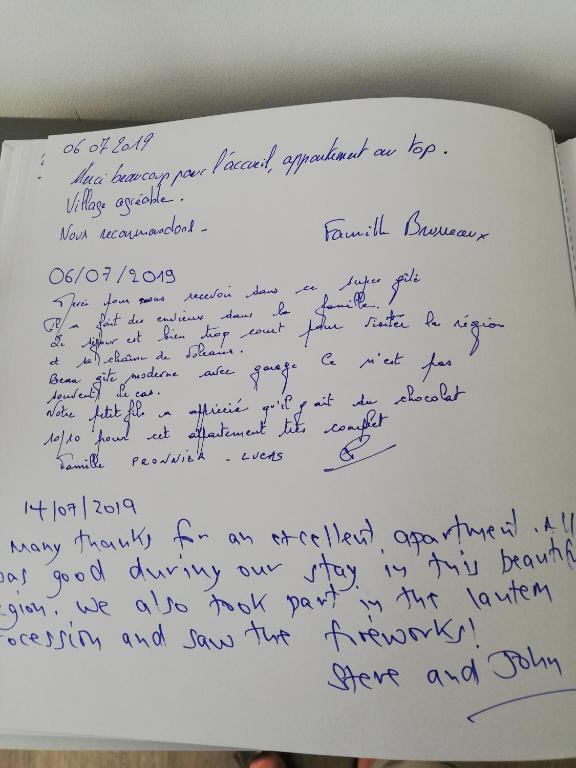 06 07 2019
Merci beaucoup pour l'accueil, appartement au top.
Village agréable.
Nous recommandons -
Famille Bruneaux
06/07/2019
Merci pour nous recevoir dans ce super gîte
Il a fait des envieux dans la famille.
Le séjour est bien trop court pour visiter la région
et sa chaîne de volcans.
Beau gîte moderne avec garage Ce n'est pas
souvent le cas.
Notre petit fils a apprécié qu'il y ait du chocolat
10/10 pour cet appartement très complet
Famille PRONNIER - LUCAS
14/07/2019
Many thanks for an excellent apartment. All
was good during our stay in this beautif
egion. We also took part in the lantern
ocession and saw the fireworks!
Steve and John